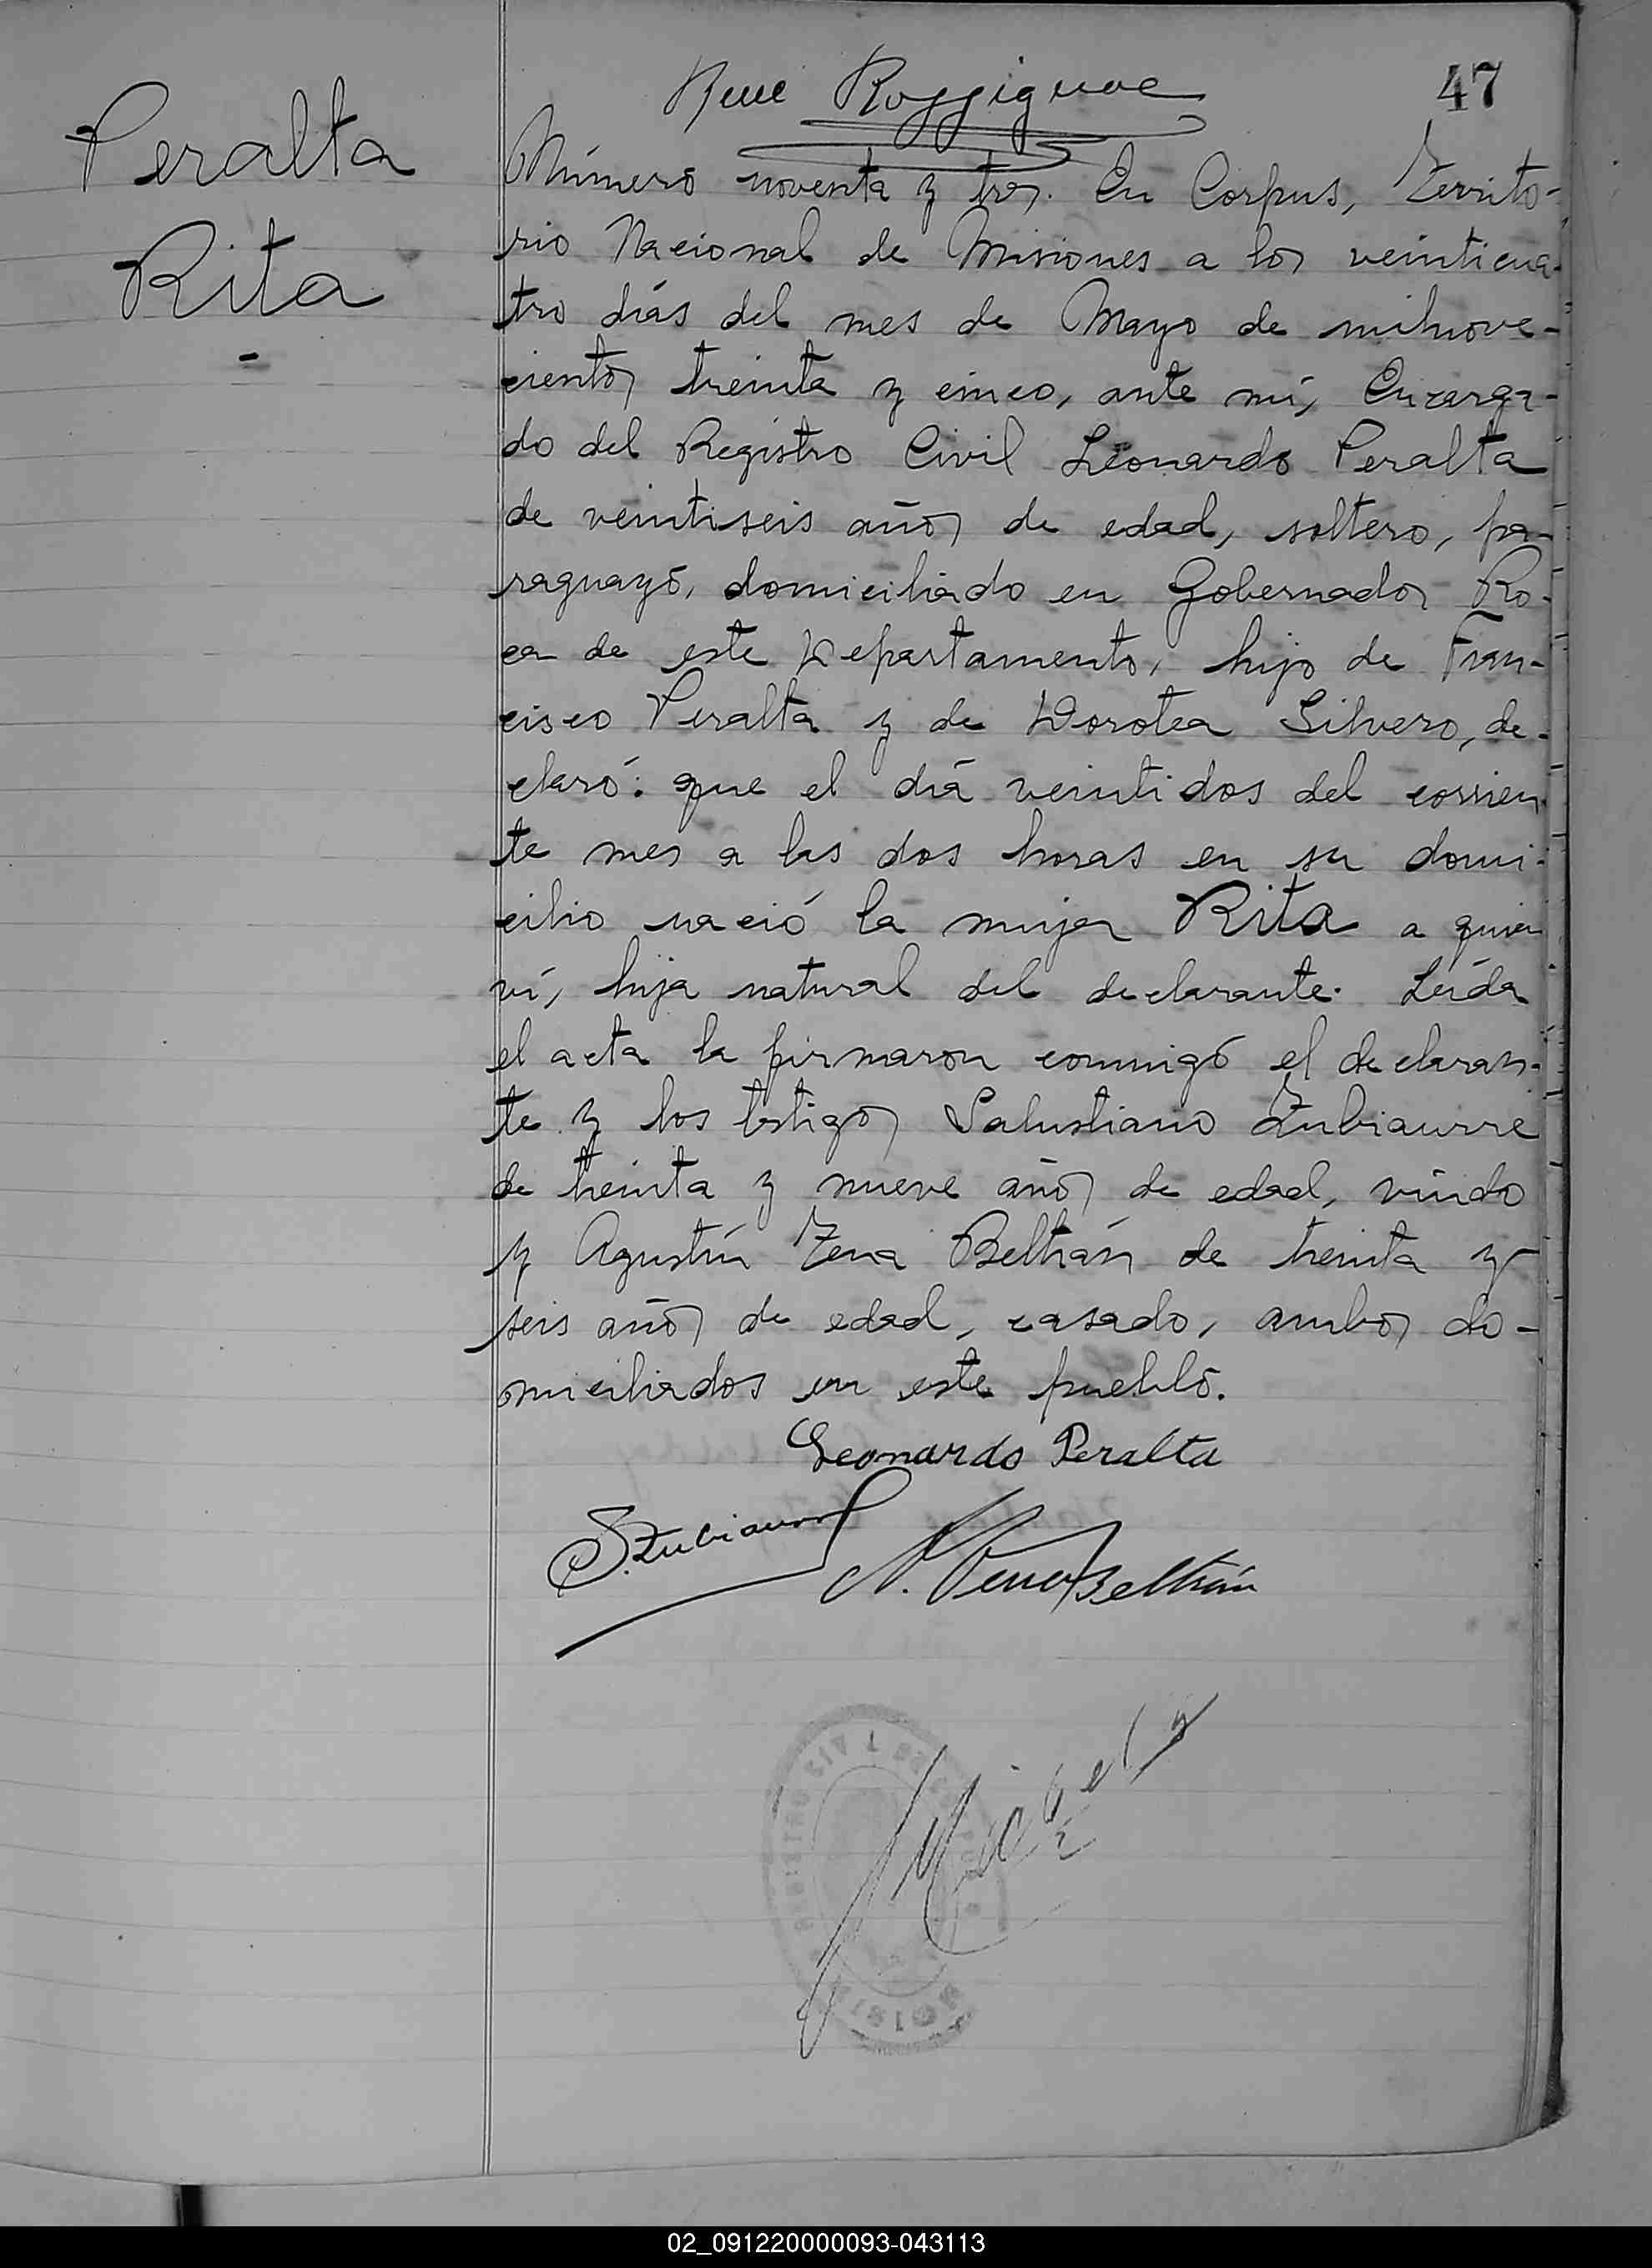 47
Peralta
Rita
Número noventa y tres. En Corpus, Territo-
rio Nacional de Misiones a los veinticua-
tro días del mes de Mayo de milnove-
cientos treinta y cinco, ante mí, Encarga-
do del Registro Civil Leonardo Peralta
de veintiseis años de edad, soltero, pa-
raguayo, domiciliado en Gobernador Ro-
ca de este Departamento, hijo de Fran-
cisco Peralta y de Dorotea Silvero, de-
claró: que el día veintidos del corrien-
te mes a las dos horas en su domi-
cilio nació la mujer Rita a quien
ví, hija natural del declarante. Leída
el acta la firmaron conmigo el declaran-
te y los testigos Salustiano Zubiaurre
de treinta y nueve años de edad, viudo
y Agustín Tena Beltrán de treinta y
seis años de edad, casado, ambos do-
miciliados en este pueblo.
Leonardo Peralta
S. Zubiaurre
A. Tena Beltrán
02_091220000093-043113